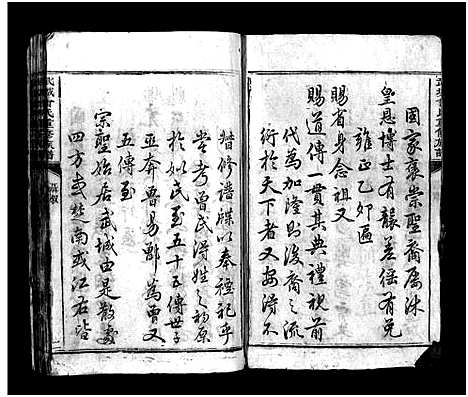 國家褒崇聖裔屢沐
皇恩博士有襲差徭有免
雍正乙卯匾
賜省身念祖又
賜道傳一貫其典禮視前
代為加隆則後裔之流
衍於天下者又安得不
譜修譜牒以奉禋祀乎
嘗考曾氏得姓之初原
於姒氏至五十五傳世子
巫奔魯易鄫為曾又
五傳至
宗聖始居武城由是散處
四方或楚南或江右皆
武城曾氏重修族譜